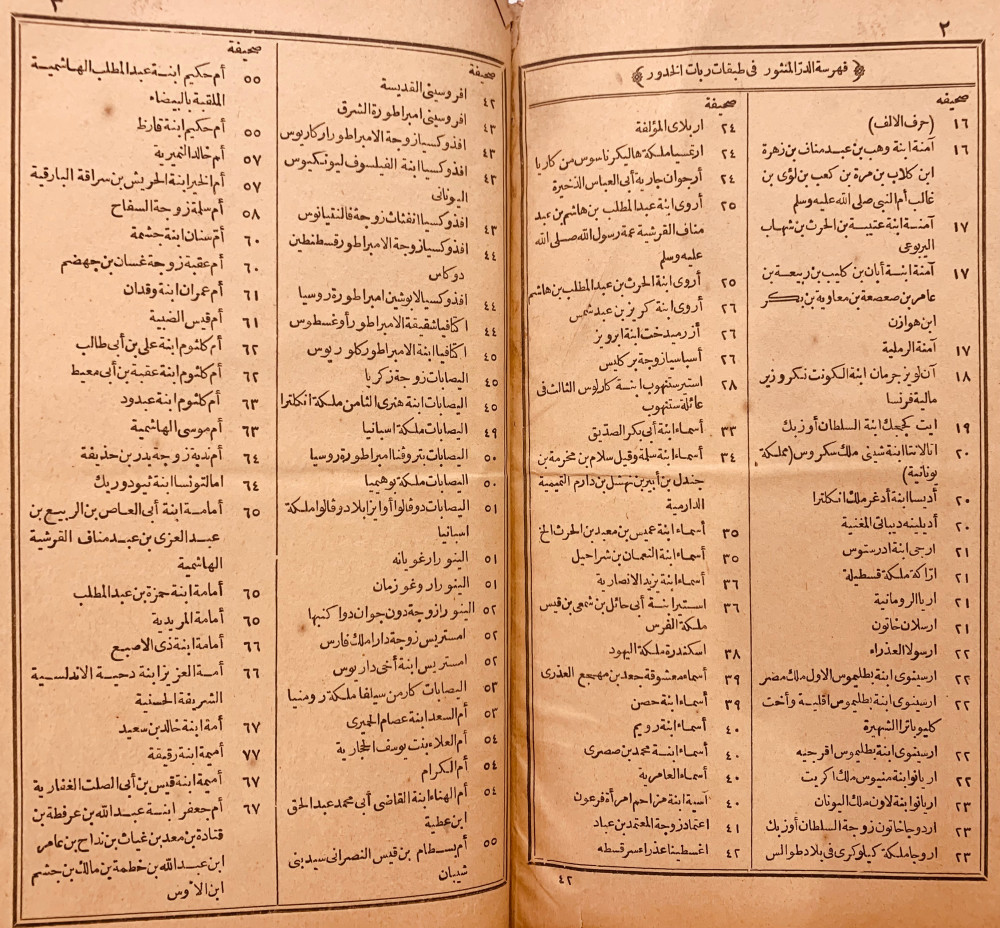 ٢
فهرسة الدر المنثور فى طبقات ربات الخدور
صحيفه
١٦ (حرف الالف)
١٦ آمنة ابنة وهب بن عبد مناف بن زهرة
ابن كلاب بن مرة بن كعب بن لؤى بن
غالب أم النبى صلى الله عليه وسلم
١٧ آمنة ابنة عتيبة بن الحرث بن شهاب
اليربوعى
١٧ آمنة ابنة أبان بن كليب بن ربيعة بن
عامر بن صعصعة بن معاوية بن بكر
ابن هوازن
١٧ آمنة الرملية
١٨ آن لويز جرمان ابنة الكونت نكر وزير
مالية فرنسا
١٩ ايت كجك ابنة السلطان أوزبك
٢٠ اتالانتا ابنة شينى ملك سكروس (مملكة
يونانية)
٢٠ أديسا ابنة أدغر ملك انكلترا
٢٠ أديلينه ديباتى المغنية
٢١ ارجى ابنة ادرستوس
٢١ اراكة ملكة قسطيلة
٢١ اريا الرومانية
٢١ ارسلان خاتون
٢٢ ارسولا العذراء
٢٢ ارسينوى ابنة بطليموس الاول ملك مصر
٢٢ ارسينوى ابنة بطليموس اقليية وأخت
كليوباترا الشهيرة
٢٢ ارسينوى ابنة بطليموس اقرجيه
٢٢ اريانوا ابنة منيوس ملك اكريت
٢٣ اريانوا ابنة لاون ملك اليونان
٢٣ اردوجا خاتون زوجة السلطان أوزبك
٢٣ اروجا ملكة كيلوكرى فى بلاد طوالس
صحيفة
٢٤ اربلاى المؤلفة
٢٤ ارتميا ملكة هاليكرناسوس من كاريا
٢٤ أرجوان جارية أبى العباس الذخيرة
٢٥ أروى ابنة عبد المطلب بن هاشم بن عبد
مناف القرشية عمة رسول الله صلى الله
عليه وسلم
٢٥ أروى ابنة الحرث بن عبد المطلب بن هاشم
٢٦ أروى ابنة كريز بن عبد شمس
٢٦ أزرميدخت ابنة ابرويز
٢٦ أسباسيا زوجة بركليس
٢٨ استيرستنهوب ابنة كارلوس الثالث فى
عائلة ستنهوب
٣٣ أسماء ابنة أبى بكر الصديق
٣٤ أسماء ابنة سلمة وقيل سلام بن مخرمة بن
جندل بن أبير بن نهشل بن دارم التميمية
الدارمية
٣٥ أسماء ابنة عميس بن معبد بن الحرث الخ
٣٥ أسماء ابنة النعمان بن شراحيل
٣٦ أسماء ابنة يزيد الانصارية
٣٦ استير ابنة أبى حائل بن شمعى بن قيس
ملكة الفرس
٣٨ اسكندرة ملكة اليهود
٣٩ أسماء معشوقة جعد بن مهجع العذرى
٣٩ أسماء ابنة حصن
٤٠ أسماء ابنة رويم
٤٠ أسماء ابنة محمد بن صصرى
٤٠ أسماء العامرية
٤٠ آسية ابنة مزاحم امرأة فرعون
٤١ اعتماد زوجة المعتمد بن عباد
٤٢ اغسطينا عذراء سرقسطه
٤٢
٣
صحيفة
٤٢ افروسينى القديسة
٤٣ افروسينى امبراطورة الشرق
٤٣ افذوكسيا زوجة الامبراطور اركاديوس
٤٣ افذوكسيا ابنة الفيلسوف ليونتكيوس
اليونانى
٤٣ افذوكسيا انفثات زوجة فالنتقيانوس
٤٤ افذوكسيا زوجة الامبراطور قسطنطين
دوكاس
٤٤ افذوكسيا لابوشين امبراطورة روسيا
٤٤ اكتافيا شقيقة الامبراطور أوغسطوس
٤٥ اكتافيا ابنة الامبراطور كلوديوس
٤٥ اليصابات زوجة زكريا
٤٥ اليصابات ابنة هنرى الثامن ملكة انكلترا
٤٩ اليصابات ملكة اسبانيا
٥٠ اليصابات بتروفنا امبراطورة روسيا
٥٠ اليصابات ملكة بوهيميا
٥١ اليصابات دوفالوا أو ايزابلا دوفالوا ملكة
اسبانيا
٥١ الينورا رغويانه
٥١ الينورا روغوزمان
٥٢ الينورا زوجة دون جوان دوا كنيها
٥٢ امستريس زوجة دارا ملك فارس
٥٢ امستريس ابنة أخى داريوس
٥٣ اليصابات كارمن سيلفا ملكة رومنيا
٥٣ أم السعد ابنة عصام الحميرى
٥٤ أم العلاء بنت يوسف الحجارية
٥٤ أم الكرام
٥٤ أم الهناء ابنة القاضى أبى محمد عبد الحق
ابن عطية
٥٥ أم بسطام بن قيس النصرانى سيد بنى
شيبان
صحيفة
٥٥ أم حكيم ابنة عبد المطلب الهاشمية
الملقبة بالبيضاء
٥٥ أم حكيم ابنة قارظ
٥٧ أم خالد النميرية
٥٧ أم الخير ابنة الحريش بن سراقة البارقية
٥٨ أم سلمة زوجة السفاح
٦٠ أم سنان ابنة حشمة
٦٠ أم عقبة زوجة غسان بن جهضم
٦١ أم عمران ابنة وقدان
٦١ أم قيس الضبية
٦٢ أم كلثوم ابنة على بن أبى طالب
٦٢ أم كلثوم ابنة عقبة بن أبى معيط
٦٣ أم كلثوم ابنة عبدود
٦٣ أم موسى الهاشمية
٦٤ أم ندبة زوجة بدر بن حذيفة
٦٤ امالتونسا ابنة ثيودوريك
٦٥ أمامة ابنة أبى العاص بن الربيع بن
عبد العزى بن عبد مناف القرشية
الهاشمية
٦٥ أمامة ابنة حمزة بن عبد المطلب
٦٥ أمامة المريدية
٦٦ أمامة ابنة ذى الاصبع
٦٦ أمة العزيز ابنة دحية الاندلسية
الشريفة الحسنية
٦٧ أمة ابنة خالد بن سعيد
٧٧ أميمة ابنة رقيقة
٦٧ أميمة ابنة قيس بن أبى الصلت الغفارية
٦٧ أم جعفر ابنة عبد الله بن عرفطة بن
قتادة بن معد بن غياث بن نداح بن عامر
ابن عبد الله بن خطمة بن مالك بن جشم
ابن الأوس